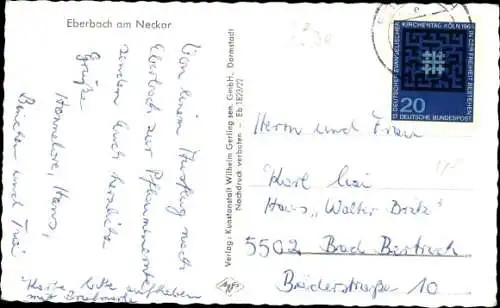 Eberbach am Neckar
Von einem Ausflug nach
Eberbach zur Pflaumenernte
senden Euch herzliche
Grüße
Hannelore, Hans,
und
Karte bitte aufheben
mit Briefmarke
Verlag: Kunstanstalt Wilhelm Gerling sen. GmbH, Darmstadt
Nachdruck verboten - Eb 1823/27
Agfa
12. DEUTSCHER EVANGELISCHER
KIRCHENTAG KÖLN 1965
IN DER FREIHEIT BESTEHEN
20
DEUTSCHE BUNDESPOST
Herrn und Frau
Karl
Haus "Walter
5502 Bad Bertrich
10